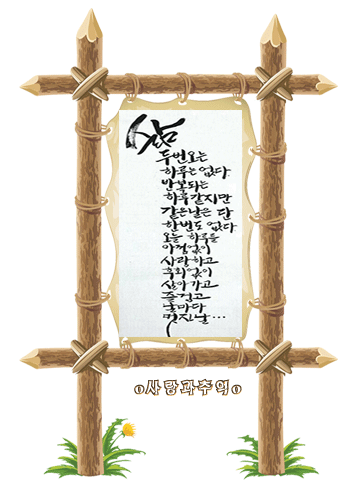 삶
두번오는
하루는 없다
반복되는
하루같지만
같은날은 단
한번도 없다
오늘 하루를
아낌없이
사랑하고
후회없이
살아가고
즐기고
날마다
멋진날...
o사랑과추억o